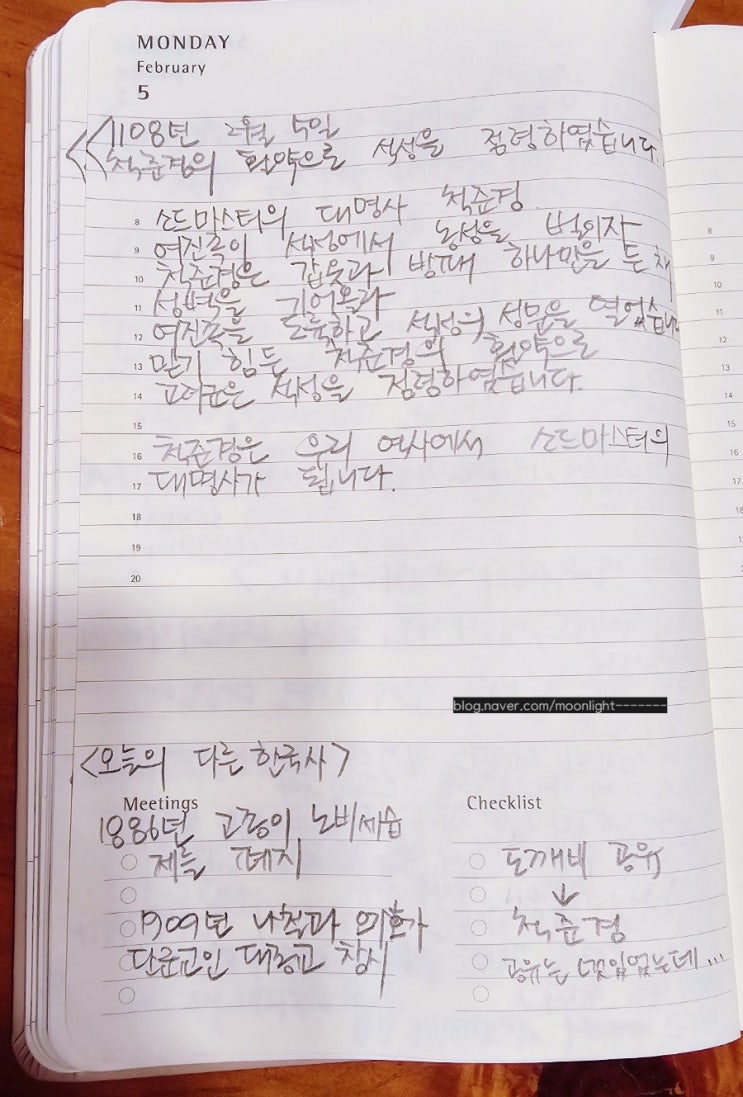 MONDAY
February
5
1108년 2월 5일
척준경의 활약으로 석성을 점령하였습니다.
8 소드마스터의 대명사 척준경
9 여진족이 석성에서 농성을 벌이자
10 척준경은 갑옷과 방패 하나만을 든 채
11 성벽을 기어올라
12 여진족을 도륙하고 석성의 성문을 열었습니다
13 믿기 힘든 척준경의 활약으로
14 고려군은 석성을 점령하였습니다.
15
16 척준경은 우리 역사에서 소드마스터의
17 대명사가 됩니다.
18
19
20
blog.naver.com/moonlight-------
<오늘의 다른 한국사>
Meetings
1886년 고종이 노비세습
제를 폐지
1909년 나철과 오기호가
단군교인 대종교 창시
Checklist
도깨비 공유
↓
척준경
공유는 멋있었는데...
8
9
10
11
12
13
14
15
16
17
18